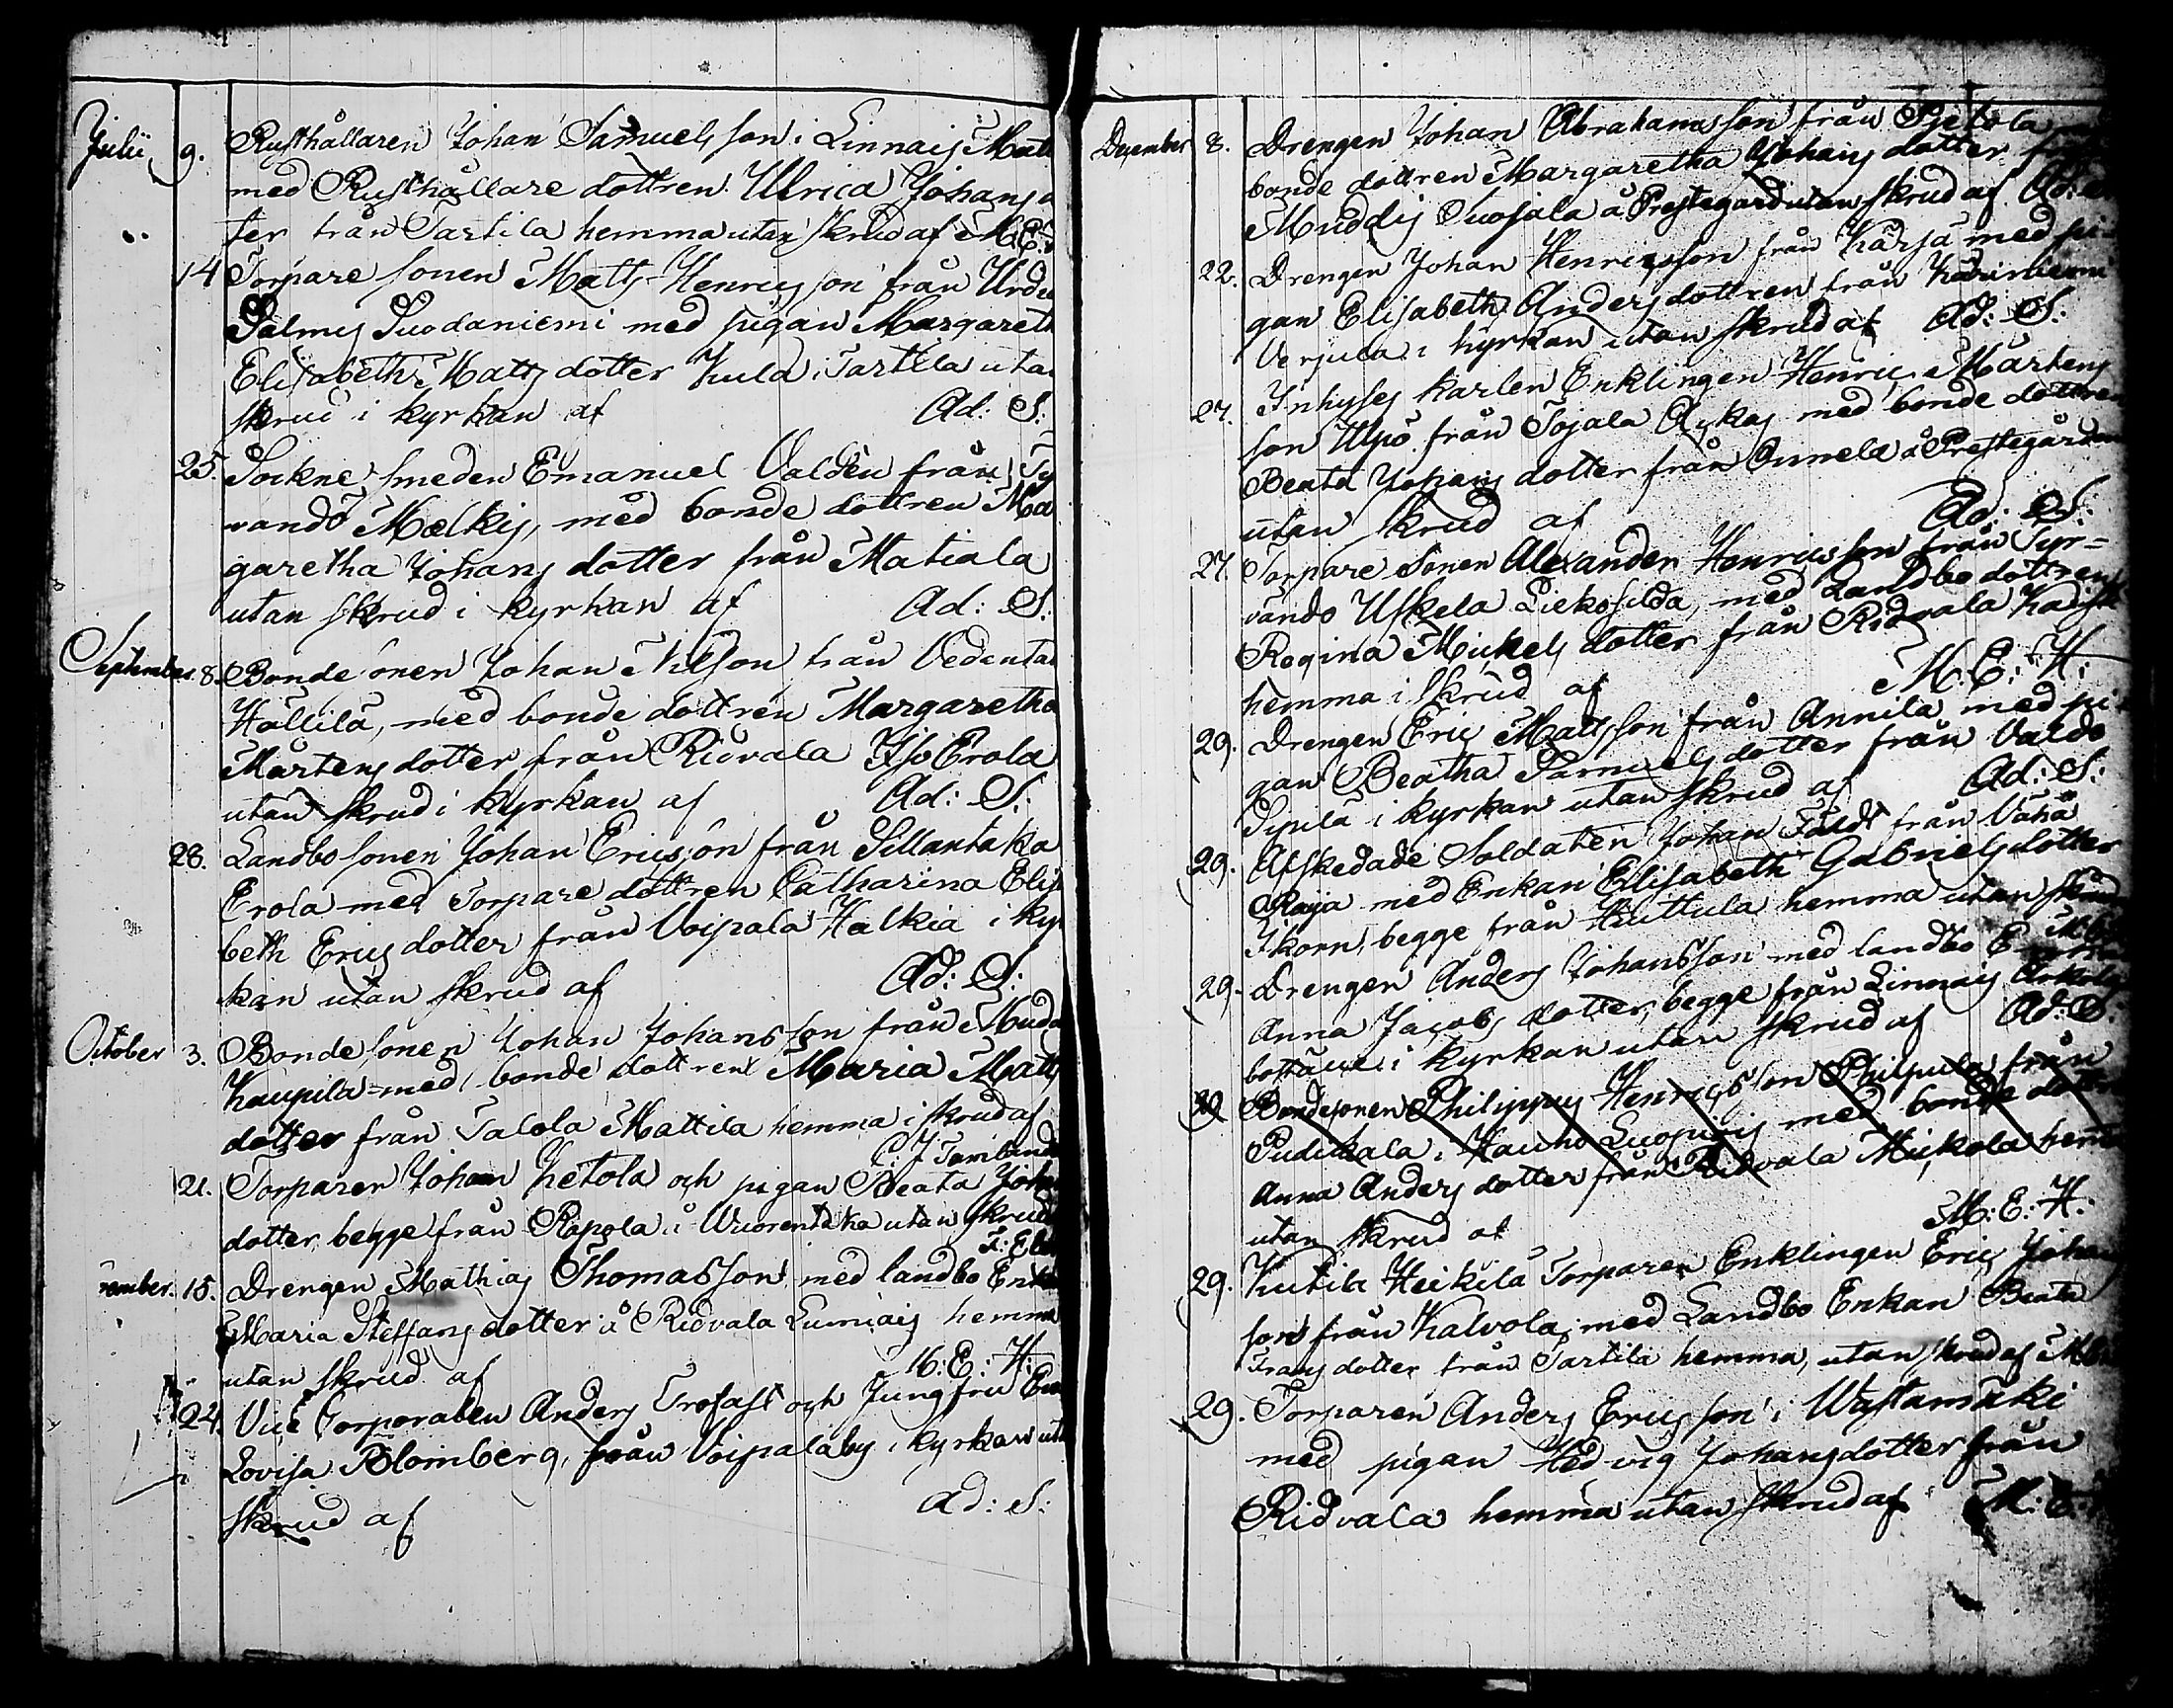 Julii 9. Rusthållaren Johan Samuelsson i Linnais Matt
med Rusthållare dottren Ulrica Johans d
ter från Tartila hemma utan skrud af M.E.
14 Torpare sonen Matts Henricsson från Urd
Salmis Suodaniemi med pigan Margareth
Elisabeth Matts dotter Kula i Tartila utan
skrud i kyrkan af Ad: S:
25. Sockne smeden Emanuel Valdén från Ty
vandö Mælkis, med bonde dottren Mar
garetha Johans dotter från Matiala
utan skrud i kyrkan af Ad: S:
September 8. Bonde sonen Johan Nilsson från Vedenta
Hällilä, med bonde dottren Margaretha
Mårtens dotter från Ridvala Iso Erola
utan skrud i kyrkan af Ad: S:
28. Landbo sonen Johan Ericsson från Sillantaka
Erola med Torpare dottren Catharina Elis
beth Erics dotter från Voipala Halkia i kyr
kan utan skrud af Ad: S:
October 3. Bonde sonen Johan Johansson från Mudd
Kaupila med bonde dottren Maria Matts
dotter från Talola Mattila hemma i skrud af
21. Torparen Johan Ketola och pigan Beata Johans
dotter begge från Rapola i Wuorentaka utan skrud
vember. 15. Drengen Mathias Thomasson med landbo Enk
Maria Steffans dotter å Ridvala hemma
utan skrud af M: E: H:
24 Vice Corporalen Anders Trofast och Jungfru
Lovisa Blomberg, från Voipala by i kyrkan ut
skrud af Ad: S:
December 8. Drengen Johan Abrahamsson från
bonde dottren Margaretha Johans dotter från
Muddis Suosala å Prestegård utan skrud af Ad:
22. Drengen Johan Henricsson från Kärsä med pi
gan Elisabeth Anders dottren från
Verjula i kyrkan utan skrud af Ad: S:
27. Inhyses karlen Enklingen Henric Mårtens
son från med bonde dottren
Beata Johans dotter från å Prestegården
utan skrud af Ad: S:
27. Torpare sonen Alexander Henricsson från Tyr=
vändö Uskela med Landbo dottren
Regina Mickels dotter från Ridvala
hemma i skrud af M: E: H:
29. Drengen Eric Mattsson från Annila med pi
gan Beatha Samuels dotter från Valdo
Sipilä i kyrkan utan skrud af Ad: S:
29. Afskedade Soldaten Johan Fäldt från Vähä
Raja med Enkan Elisabeth Gabriels dotter
Ikorn, begge från Huttula hemma utan skrud
29. Drengen Anders Johansson med landbo
Anna Jacobs dotter, begge från Linnais
i kyrkan utan skrud af Ad: S:
29 Bondesonen Philippus Henricsson från
i Hauho med bonde dottr
Anna Anders dotter från Ridvala Mickola hem
utan skrud af M: E: H:
29. Kutila Heikilä Torparen Enklingen Eric Johans
son från Kalvola, med Landbo Enkan Beata
Frans dotter från Tartila hemma, utan skrud af
29. Torparen Anders Ericsson i Wastamäki
med pigan Hedvig Johansdotter från
Ridvala hemma utan skrud af M: E: